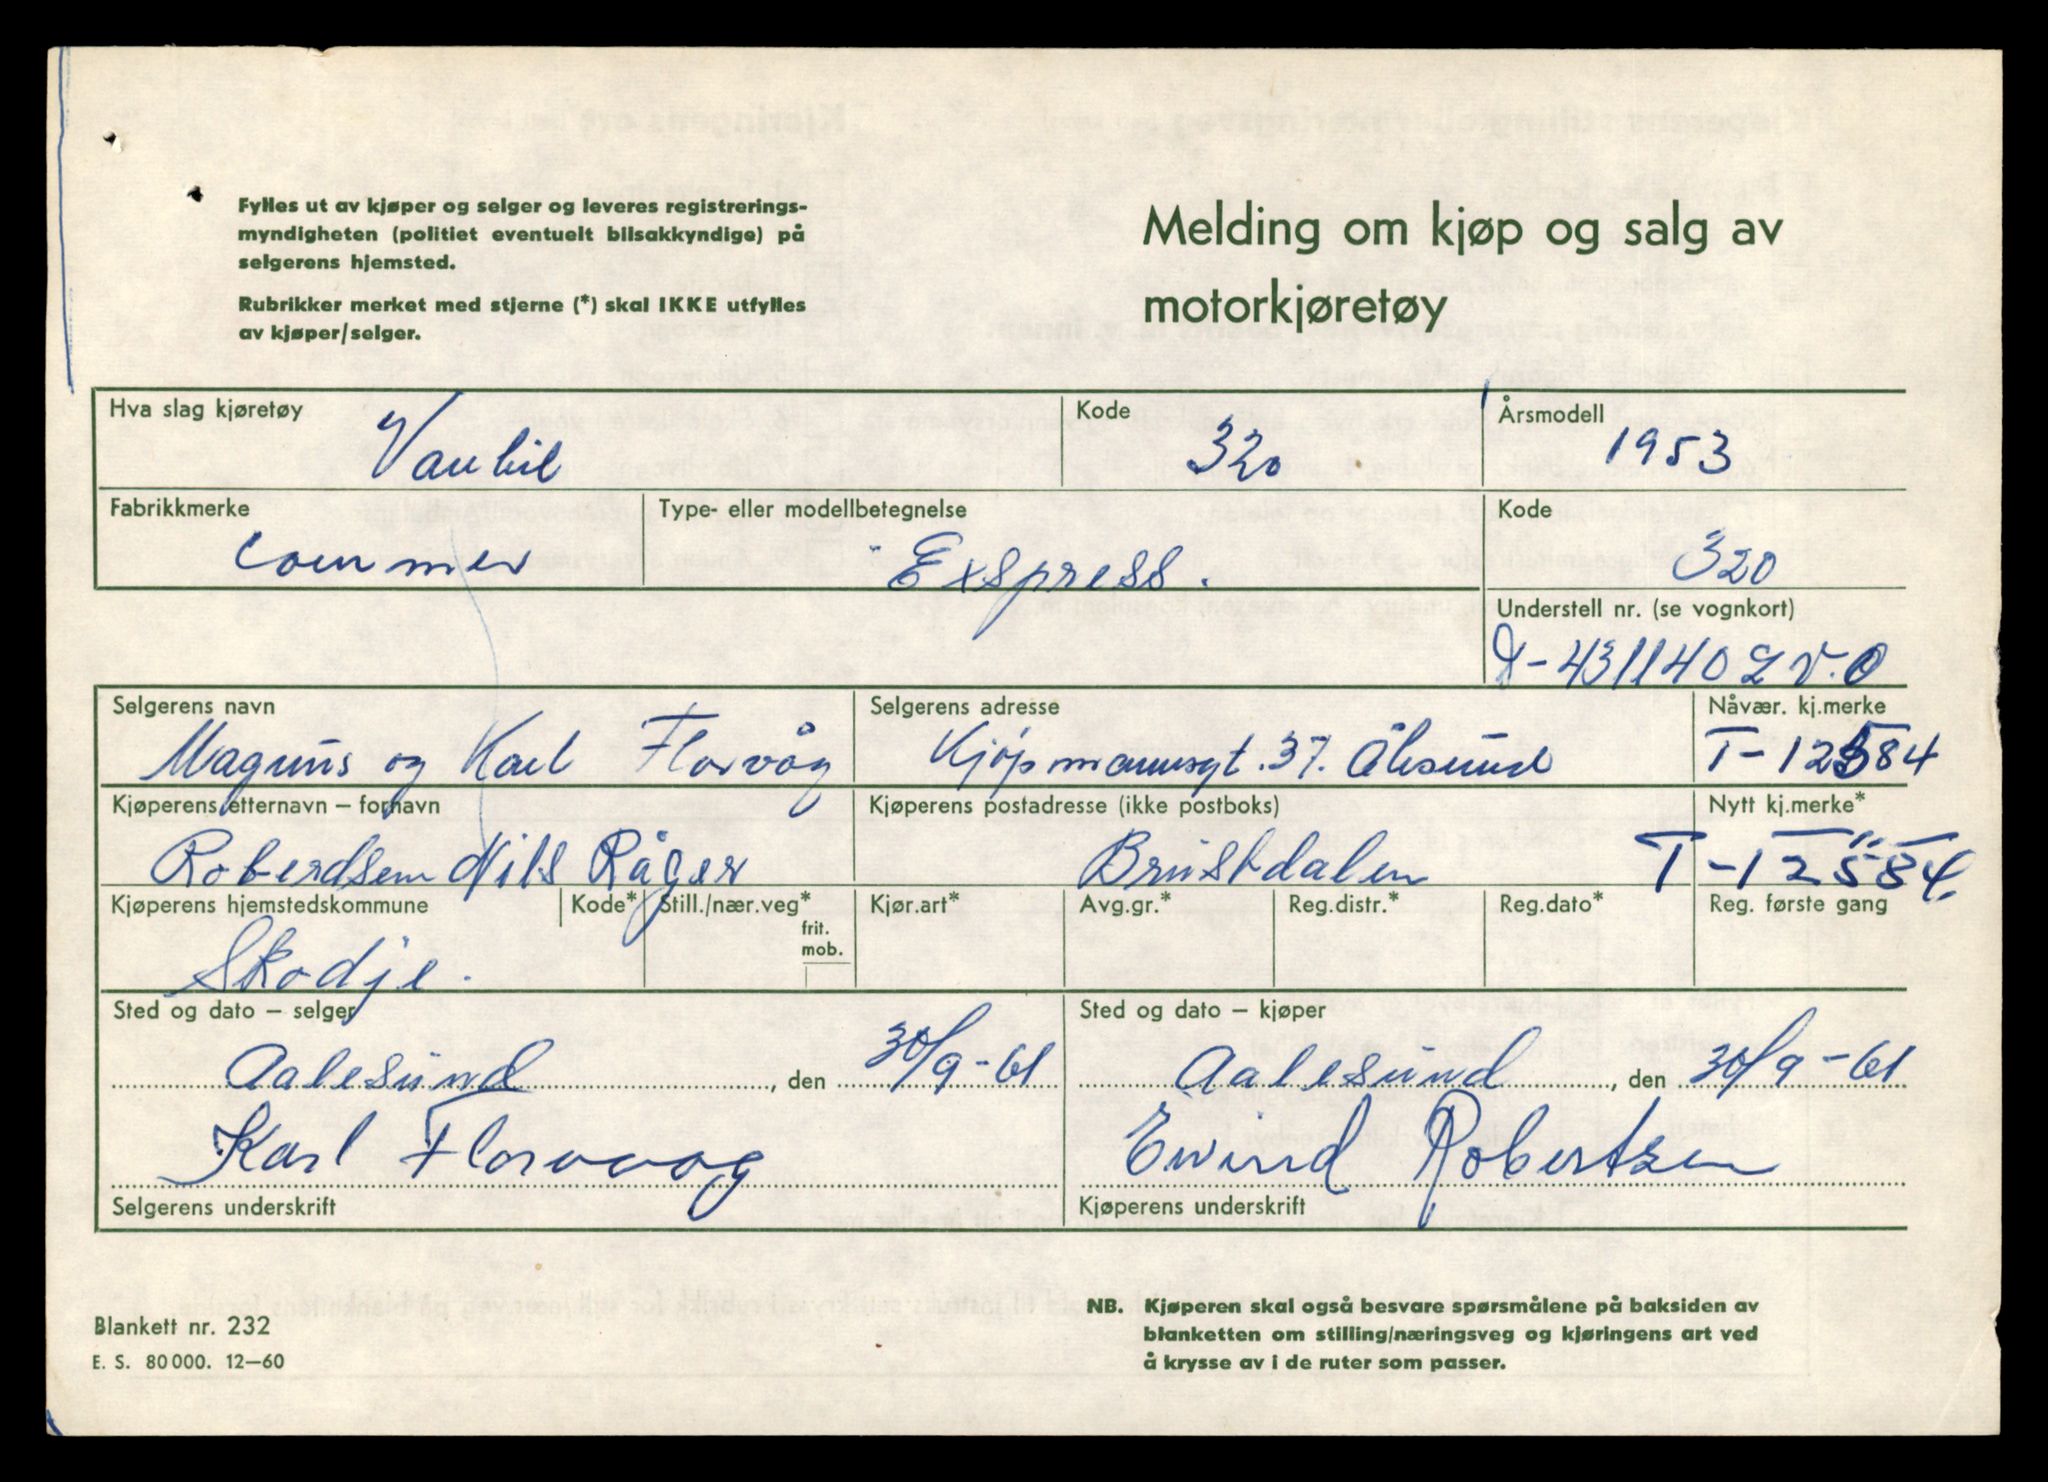 Fylles ut av kjøper og selger og leveres registrerings-
myndigheten (politiet eventuelt bilsakkyndige) på
selgerens hjemsted.
Rubrikker merket med stjerne (*) skal IKKE utfylles
av kjøper/selger.
Melding om kjøp og salg av
motorkjøretøy
Hva slag kjøretøy Kode Årsmodell
Varebil 320 1953
Fabrikkmerke Type- eller modellbetegnelse Kode
Commer Exspress. 320
Understell nr. (se vognkort)
-4311402 V.O
Selgerens navn Selgerens adresse Nåvær. kj.merke
Magnus og Karl Florvåg Kjøpmannsgt. 37. Ålesund T-12584
Kjøperens etternavn – fornavn Kjøperens postadresse (ikke postboks) Nytt kj.merke*
Roberdsen Nils Råger Brusdalen T-12584.
Kjøperens hjemstedskommune Kode* Still./nær.veg* Kjør.art* Avg.gr.* Reg.distr.* Reg.dato* Reg. første gang
frit.
mob.
Skodje.
Sted og dato – selger Sted og dato – kjøper
Aalesund, den 30/9-61 Aalesund, den 30/9-61
Karl Florvaag Ewind Robertsen
Selgerens underskrift Kjøperens underskrift
NB. Kjøperen skal også besvare spørsmålene på baksiden av
blanketten om stilling/næringsveg og kjøringens art ved
å krysse av i de ruter som passer.
Blankett nr. 232
E. S. 80 000. 12–60